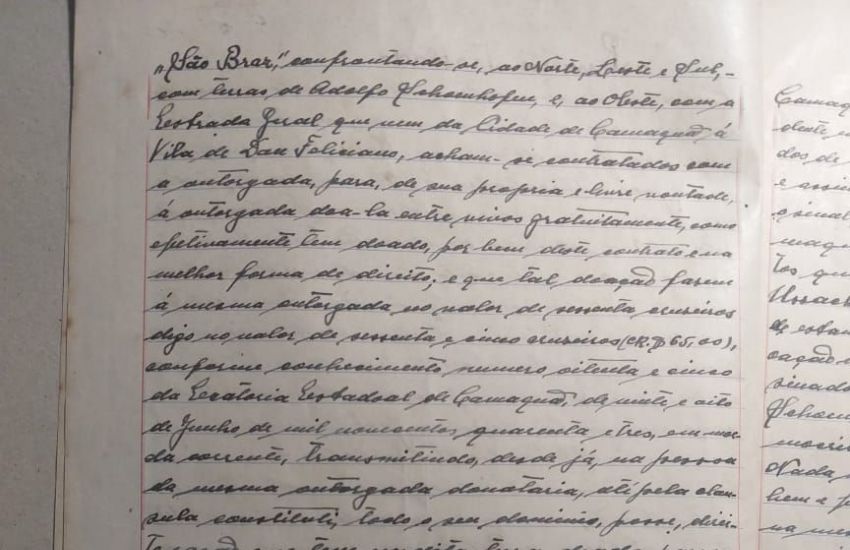 "São Braz", confrontando-se, ao Norte, Leste e Sul,-
com terras, de Adolfo Schoenhofen, e, ao Oeste, com a
Estrada Geral que vem da Cidade de Camaquã á
Vila de Dom Feliciano, acham-se contratados com
a outorgada, para, de sua propria e livre vontade,
á outorgada doa-la entre vivos gratuitamente, como
efetivamente tem doado, por bem deste contrato e na
melhor forma de direito; e que tal doação fazem
á mesma outorgada no valor de sessenta cruzeiros
digo no valor de sessenta e cinco cruzeiros (CR.$ 65,00),
conforme conhecimento numero oitenta e cinco
da Exatoria Estadoal de Camaquã, de vinte e oito
de Junho, de mil novecentos quarenta e tres, em moe-
da corrente, transmitindo, desde já, na pessoa
da mesma outorgada donataria, até pela clau-
sula constituti, todo o seu dominio, posse, direi-
Camaq
oeste
dos de
e assin
sinal
maqu
tos qu
de estan
oação
sinado
Schoen
Nada
bem e
na me